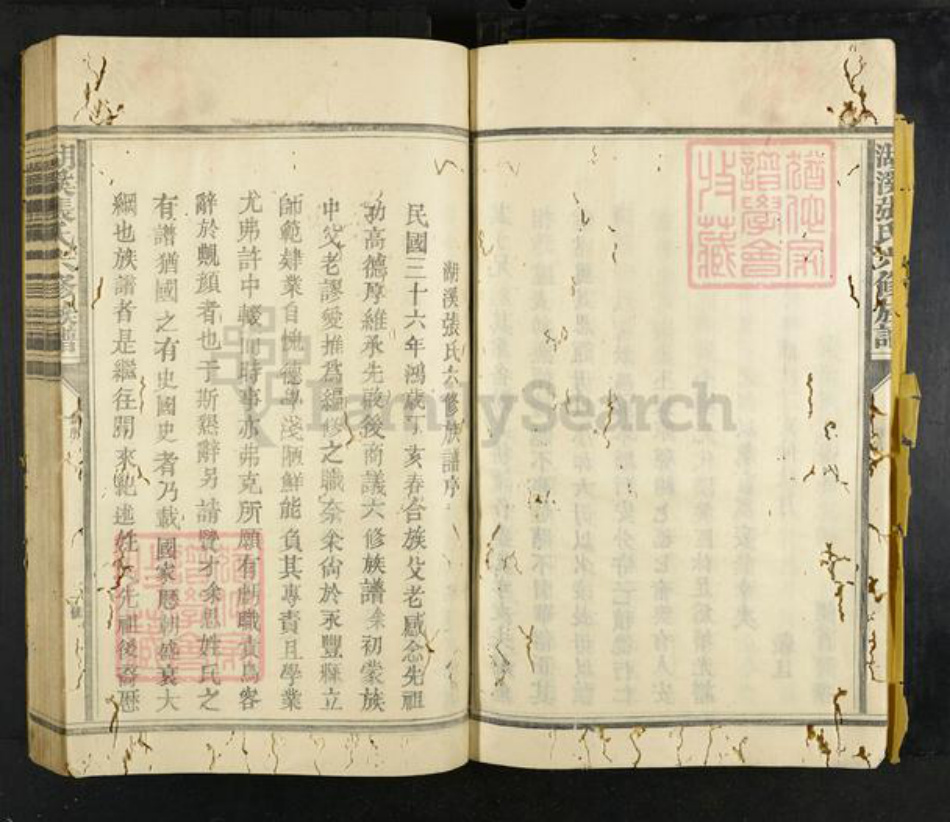 湖溪張氏六修族譜
猶他家
譜學會
收藏
湖溪張氏六修族譜序
民國三十六年鴻歲丁亥春合族父老感念先祖
功高德厚維承先啟後商議六修族譜余初蒙族
中父老謬愛推為編修之職奈余尙於永豐縣立
師範肄業自愧德學淺陋鮮能負其專責且學業
尤弗許中輟而時事亦弗克所願有
辭於覥顏者也于斯懇辭另請賢才余思姓氏之
有譜猶國之有史國史者乃載國家歷朝盛衰大
綱也族譜者是繼往開來
先祖後裔歷
湖溪張氏六修族譜
猶他家
譜學會
收藏
FamilySearch